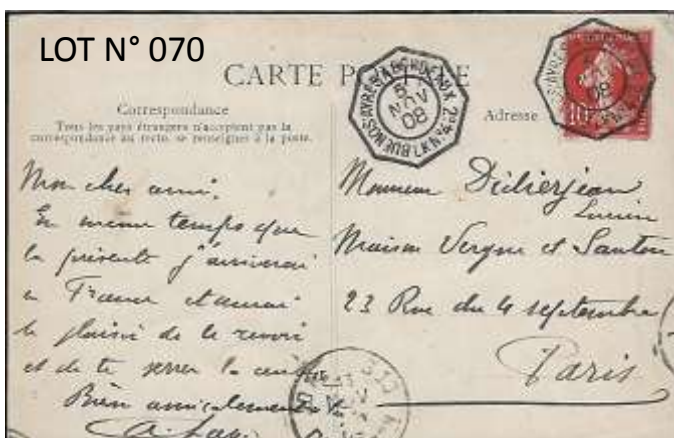 LOT N° 070
CARTE POSTALE
Correspondance
Tous les pays étrangers n'acceptent pas la
correspondance au recto, se renseigner à la poste.
Adresse
BUENOS-AYRES A BORDEAUX 2° LK N° 4
5
NOV
08
5
08
10
Mon cher ami,
En même temps que
la présente j'arriverai
en France et aurai
le plaisir de te revoir
et de te serrer la
Bien amicalement
Monsieur Didierjean
Lucien
Maison Vergne et Santon
23 Rue du 4 septembre
Paris